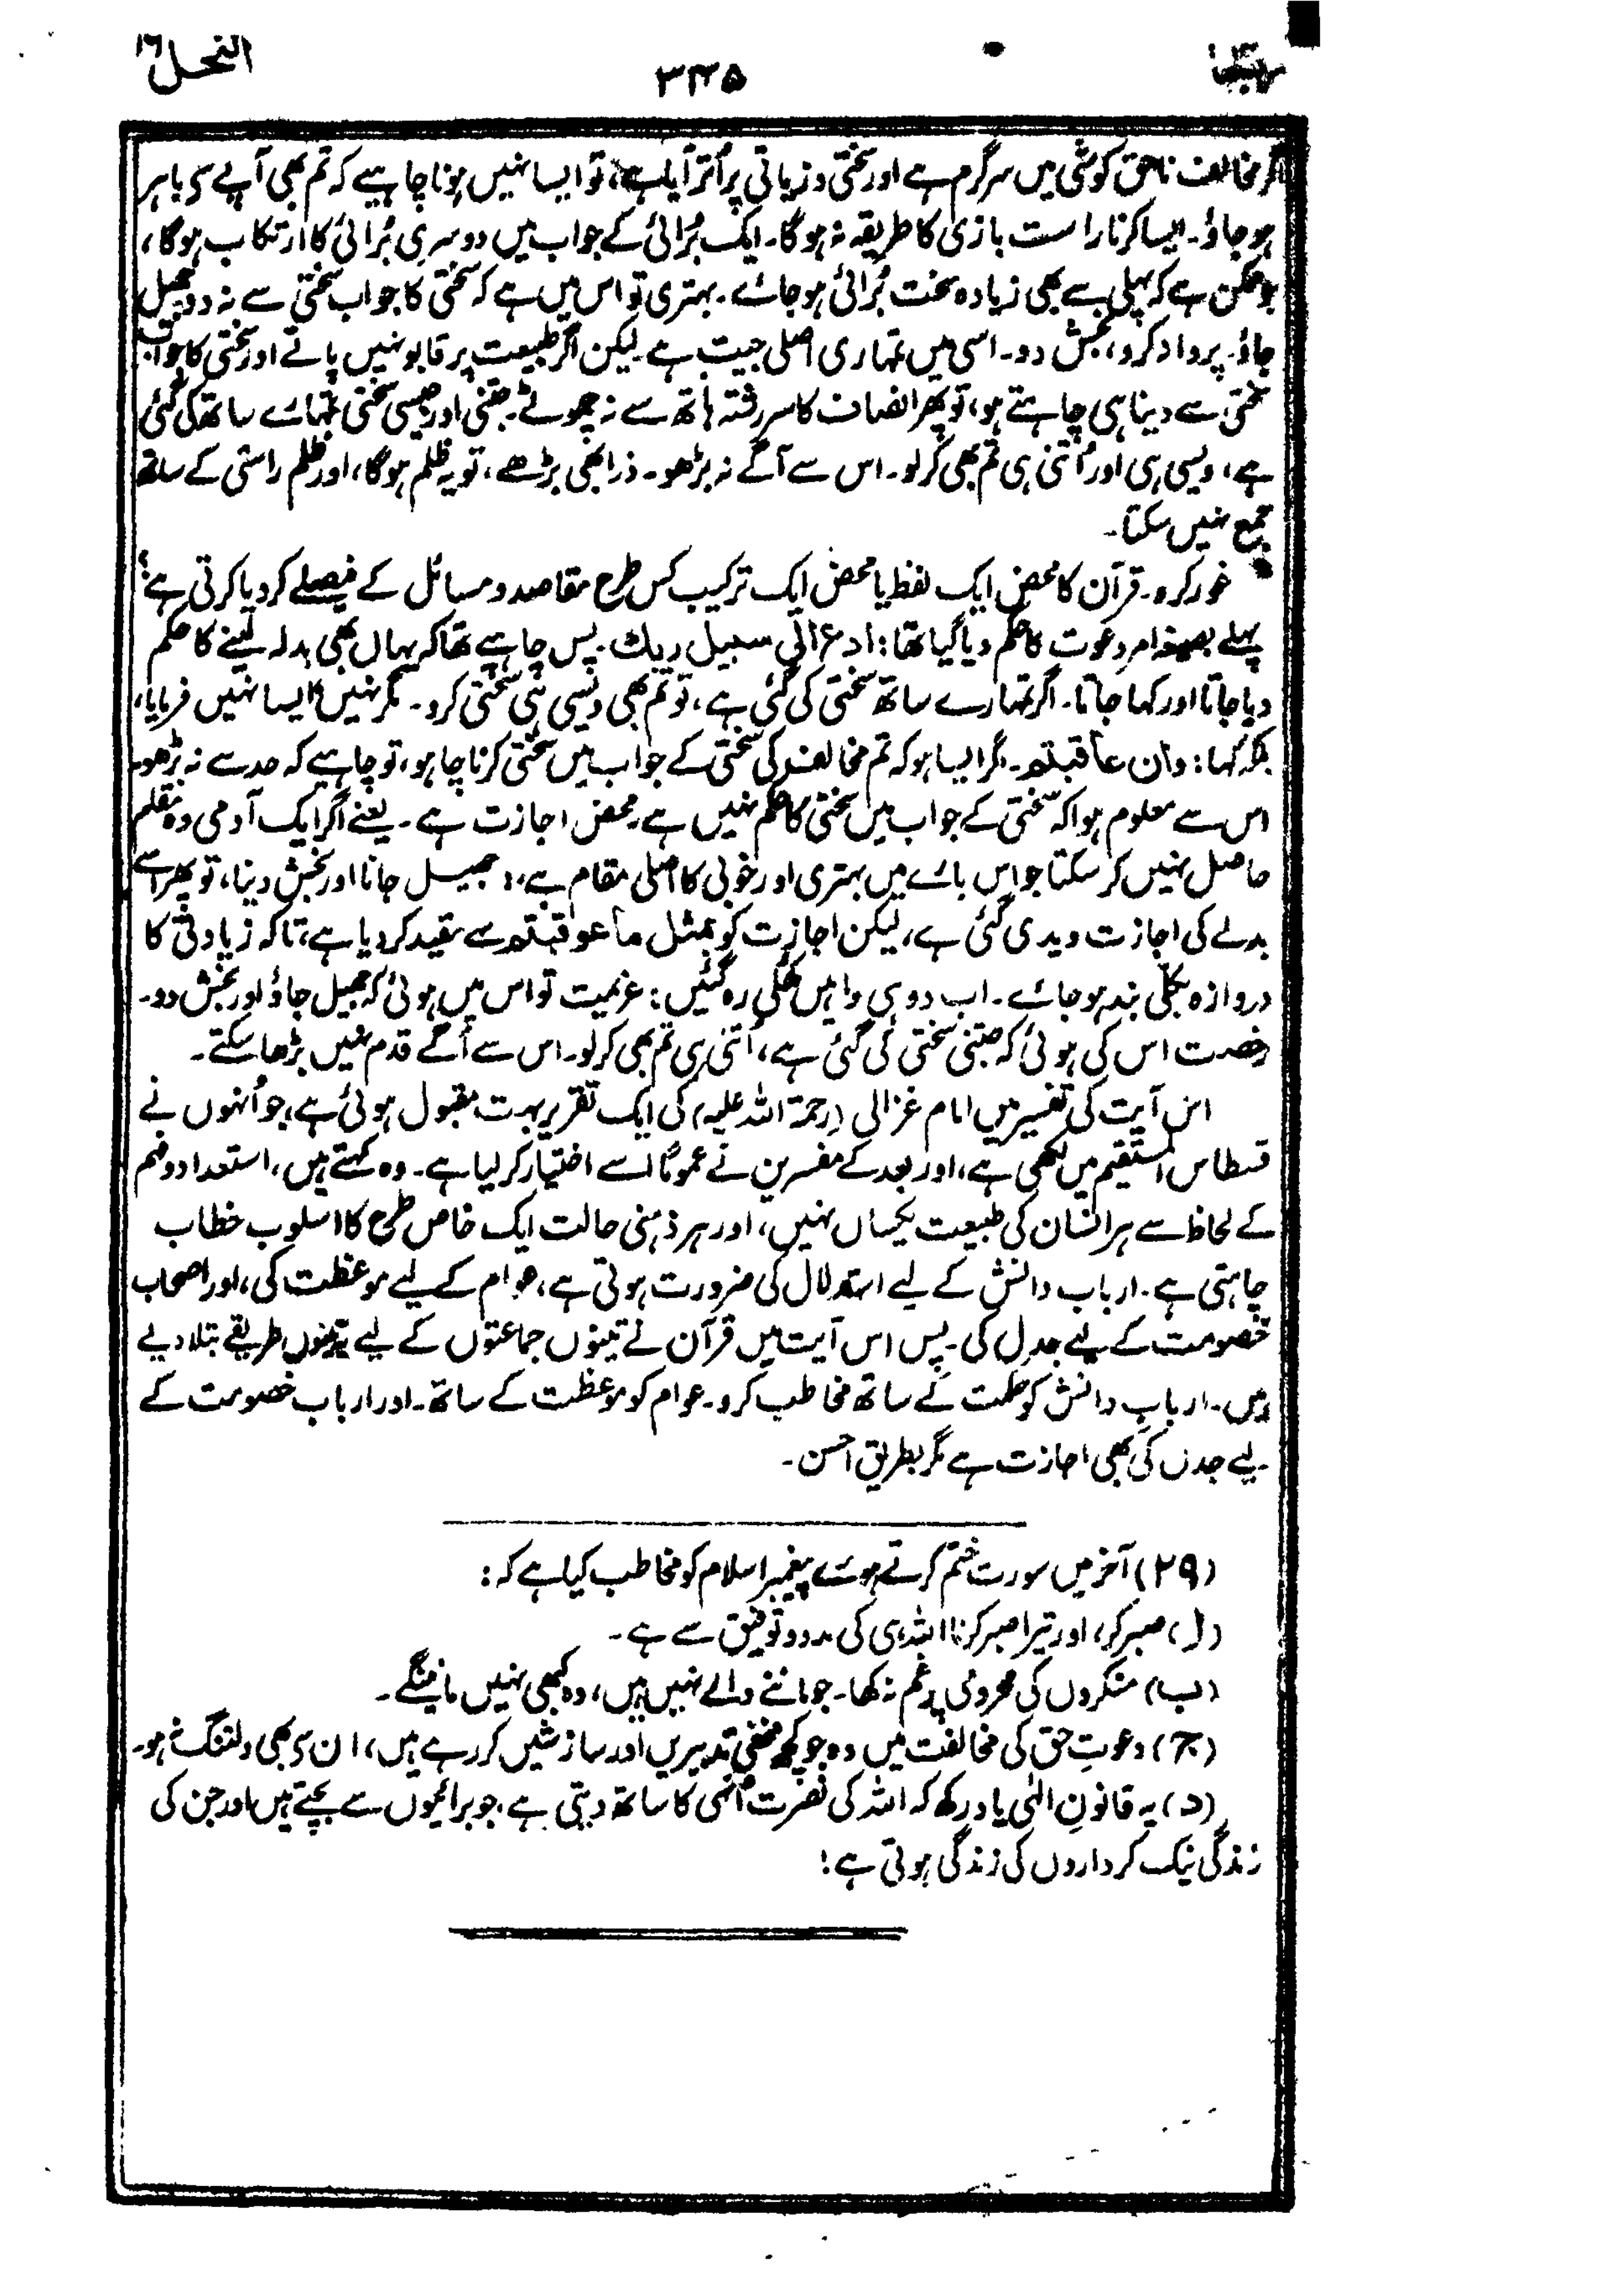 النحل ١٦
٣٤٥
اگر مخالف ناحق کوشی میں سرگرم ہے اور سختی و زیادتی پر اُتر آیا ہے، تو ایسا نہیں ہونا چاہیے کہ تم بھی آپے سے باہر
ہو جاؤ۔ ایسا کرنا راست بازی کا طریقہ نہ ہوگا۔ ایک بُرائی کے جواب میں دوسری بُرائی کا ارتکاب ہوگا،
جو ممکن ہے کہ پہلی سے بھی زیادہ سخت بُرائی ہو جائے۔ بہتری تو اس میں ہے کہ سختی کا جواب سختی سے نہ دو۔ جھیل
جاؤ۔ پروا نہ کرو، بخش دو۔ اسی میں تمہاری اصلی جیت ہے۔ لیکن اگر طبیعت پر قابو نہیں پاتے اور سختی کا جواب
سختی سے دینا ہی چاہتے ہو، تو پھر انصاف کا سررشتہ ہاتھ سے نہ چھوٹے۔ جتنی اور جیسی سختی تمہارے ساتھ کی گئی
ہے، ویسی ہی اور اُتنی ہی تم بھی کر لو۔ اس سے آگے نہ بڑھو۔ ذرا بھی بڑھے، تو یہ ظلم ہوگا، اور ظلم راستی کے ساتھ
جمع نہیں سکتا۔
غور کرو۔ قرآن کا محض ایک لفظ یا محض ایک ترکیب کس طرح مقاصد و مسائل کے فیصلے کر دیا کرتی ہے؟
پہلے بصیغہ امر دعوت کا حکم دیا گیا تھا: ادع الی سبیل ربك۔ پس چاہیے تھا کہ یہاں بھی بدلہ لینے کا حکم
دیا جاتا اور کہا جاتا۔ اگر تمہارے ساتھ سختی کی گئی ہے، تو تم بھی ویسی ہی سختی کرو۔ مگر نہیں، ایسا نہیں فرمایا،
بلکہ کہا: وان عاقبتم۔ اگر ایسا ہو کہ تم مخالف کی سختی کے جواب میں سختی کرنا چاہو، تو چاہیے کہ حد سے نہ بڑھو۔
اس سے معلوم ہوا کہ سختی کے جواب میں سختی کا حکم نہیں ہے محض اجازت ہے۔ یعنے اگر ایک آدمی وہ مقام
حاصل نہیں کر سکتا جو اس بارے میں بہتری اور خوبی کا اصلی مقام ہے، جھیل جانا اور بخش دینا، تو پھر اسے
بدلے کی اجازت دیدی گئی ہے، لیکن اجازت کو بمثل ما عوقبتم سے مقید کر دیا ہے، تاکہ زیادتی کا
دروازہ بکلی بند ہو جائے۔ اب دو ہی راہیں کھلی رہ گئیں: عزیمت تو اس میں ہوئی کہ جھیل جاؤ اور بخش دو۔
رخصت اس کی ہوئی کہ جتنی سختی کی گئی ہے، اُتنی ہی تم بھی کر لو۔ اس سے آگے قدم نہیں بڑھا سکتے۔
اس آیت کی تفسیر میں امام غزالی (رحمۃ اللہ علیہ) کی ایک تقریر بہت مقبول ہوئی ہے، جو اُنہوں نے
قسطاس المستقیم میں لکھی ہے، اور بعد کے مفسرین نے عموماً اسے اختیار کر لیا ہے۔ وہ کہتے ہیں، استعداد و فہم
کے لحاظ سے ہر انسان کی طبیعت یکساں نہیں، اور ہر ذہنی حالت ایک خاص طرح کا اسلوب خطاب
چاہتی ہے۔ ارباب دانش کے لیے استدلال کی ضرورت ہوتی ہے، عوام کے لیے موعظت کی، اور اصحاب
خصومت کے لیے جدل کی۔ پس اس آیت میں قرآن نے تینوں جماعتوں کے لیے تینوں طریقے بتلا دیے
ہیں۔ اربابِ دانش کو حکمت کے ساتھ مخاطب کرو۔ عوام کو موعظت کے ساتھ۔ اور ارباب خصومت کے
لیے جدل کی بھی اجازت ہے مگر بطریق احسن۔
(٢٩) آخر میں سورت ختم کرتے ہوئے پیغمبر اسلام کو مخاطب کیا ہے کہ:
(ا) صبر کر، اور تیرا صبر کرنا اللہ ہی کی مدد و توفیق سے ہے۔
(ب) منکروں کی محرومی پر غم نہ کھا۔ جو ماننے والے نہیں ہیں، وہ کبھی نہیں مانینگے۔
(ج) دعوتِ حق کی مخالفت میں وہ جو کچھ مخفی تدبیریں اور سازشیں کر رہے ہیں، ان سے بھی دلتنگ نہ ہو۔
(د) یہ قانونِ الٰہی یاد رکھ کہ اللہ کی نصرت اُنہی کا ساتھ دیتی ہے، جو برائیوں سے بچتے ہیں اور جن کی
زندگی نیک کرداروں کی زندگی ہوتی ہے!